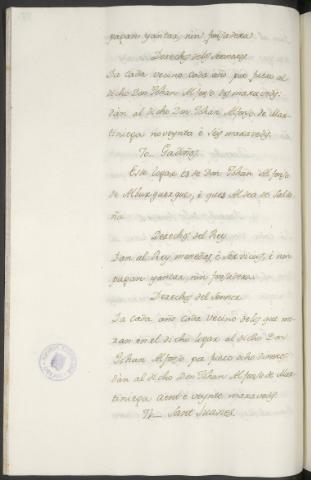 pagan yantar, nin fonsadera.
Derechos delos Sennores
Da cada vecino cada año por
dicho Don Johan Alfonso dos maravedis:
dan al dicho Don Johan Alfonso de Mar-
tiniega noventa é seis maravedis.
Este logar es de Don Johan Alfonso
de Alburquerque, é ques Aldea de Salda-
ña.
Derechos del Rey
Dan al Rey monedas é servicios, é non
pagan yantar, nin fonsadera.
Derechos del Sennor
Da cada año cada vecino delos que mo-
ran en el dicho logar al dicho Don
Johan Alfonso, por ocho dineros:
dan al dicho Don Johan Alfonso de Mar-
tiniega cient é veynte maravedis.
Sant Suanes